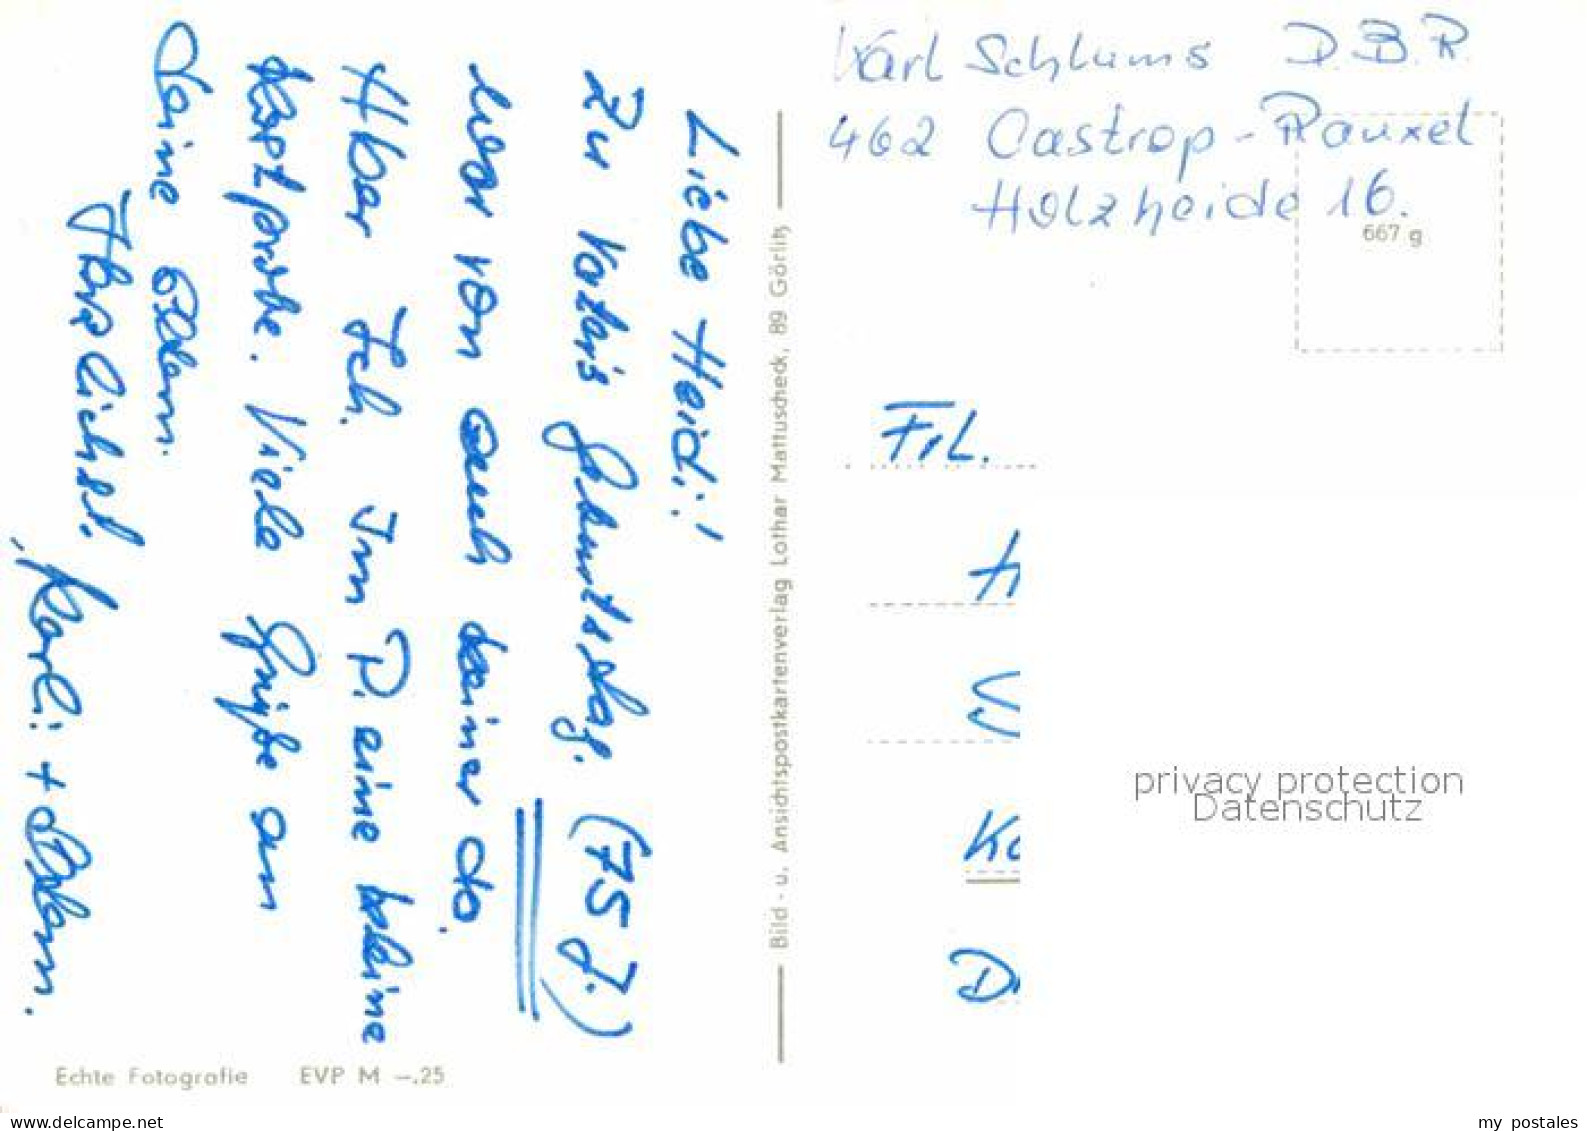 Liebe Heidi!
Zu Vater's Geburtstag. (75 J.)
war von euch keiner da.
Aber Ich. Im P. eine kleine
Kostprobe. Viele Grüße an
Deine Eltern.
Herzlichst.
Karli + Eltern.
Echte Fotografie EVP M –.25
Bild - u. Ansichtspostkartenverlag Lothar Mattuscheck, 89 Görlitz
Karl Schlums D.B.R.
462 Castrop-Rauxel
Holzheide 16.
667 g
Frl.
Ka
privacy protection
Datenschutz
www.delcampe.net
my_postales